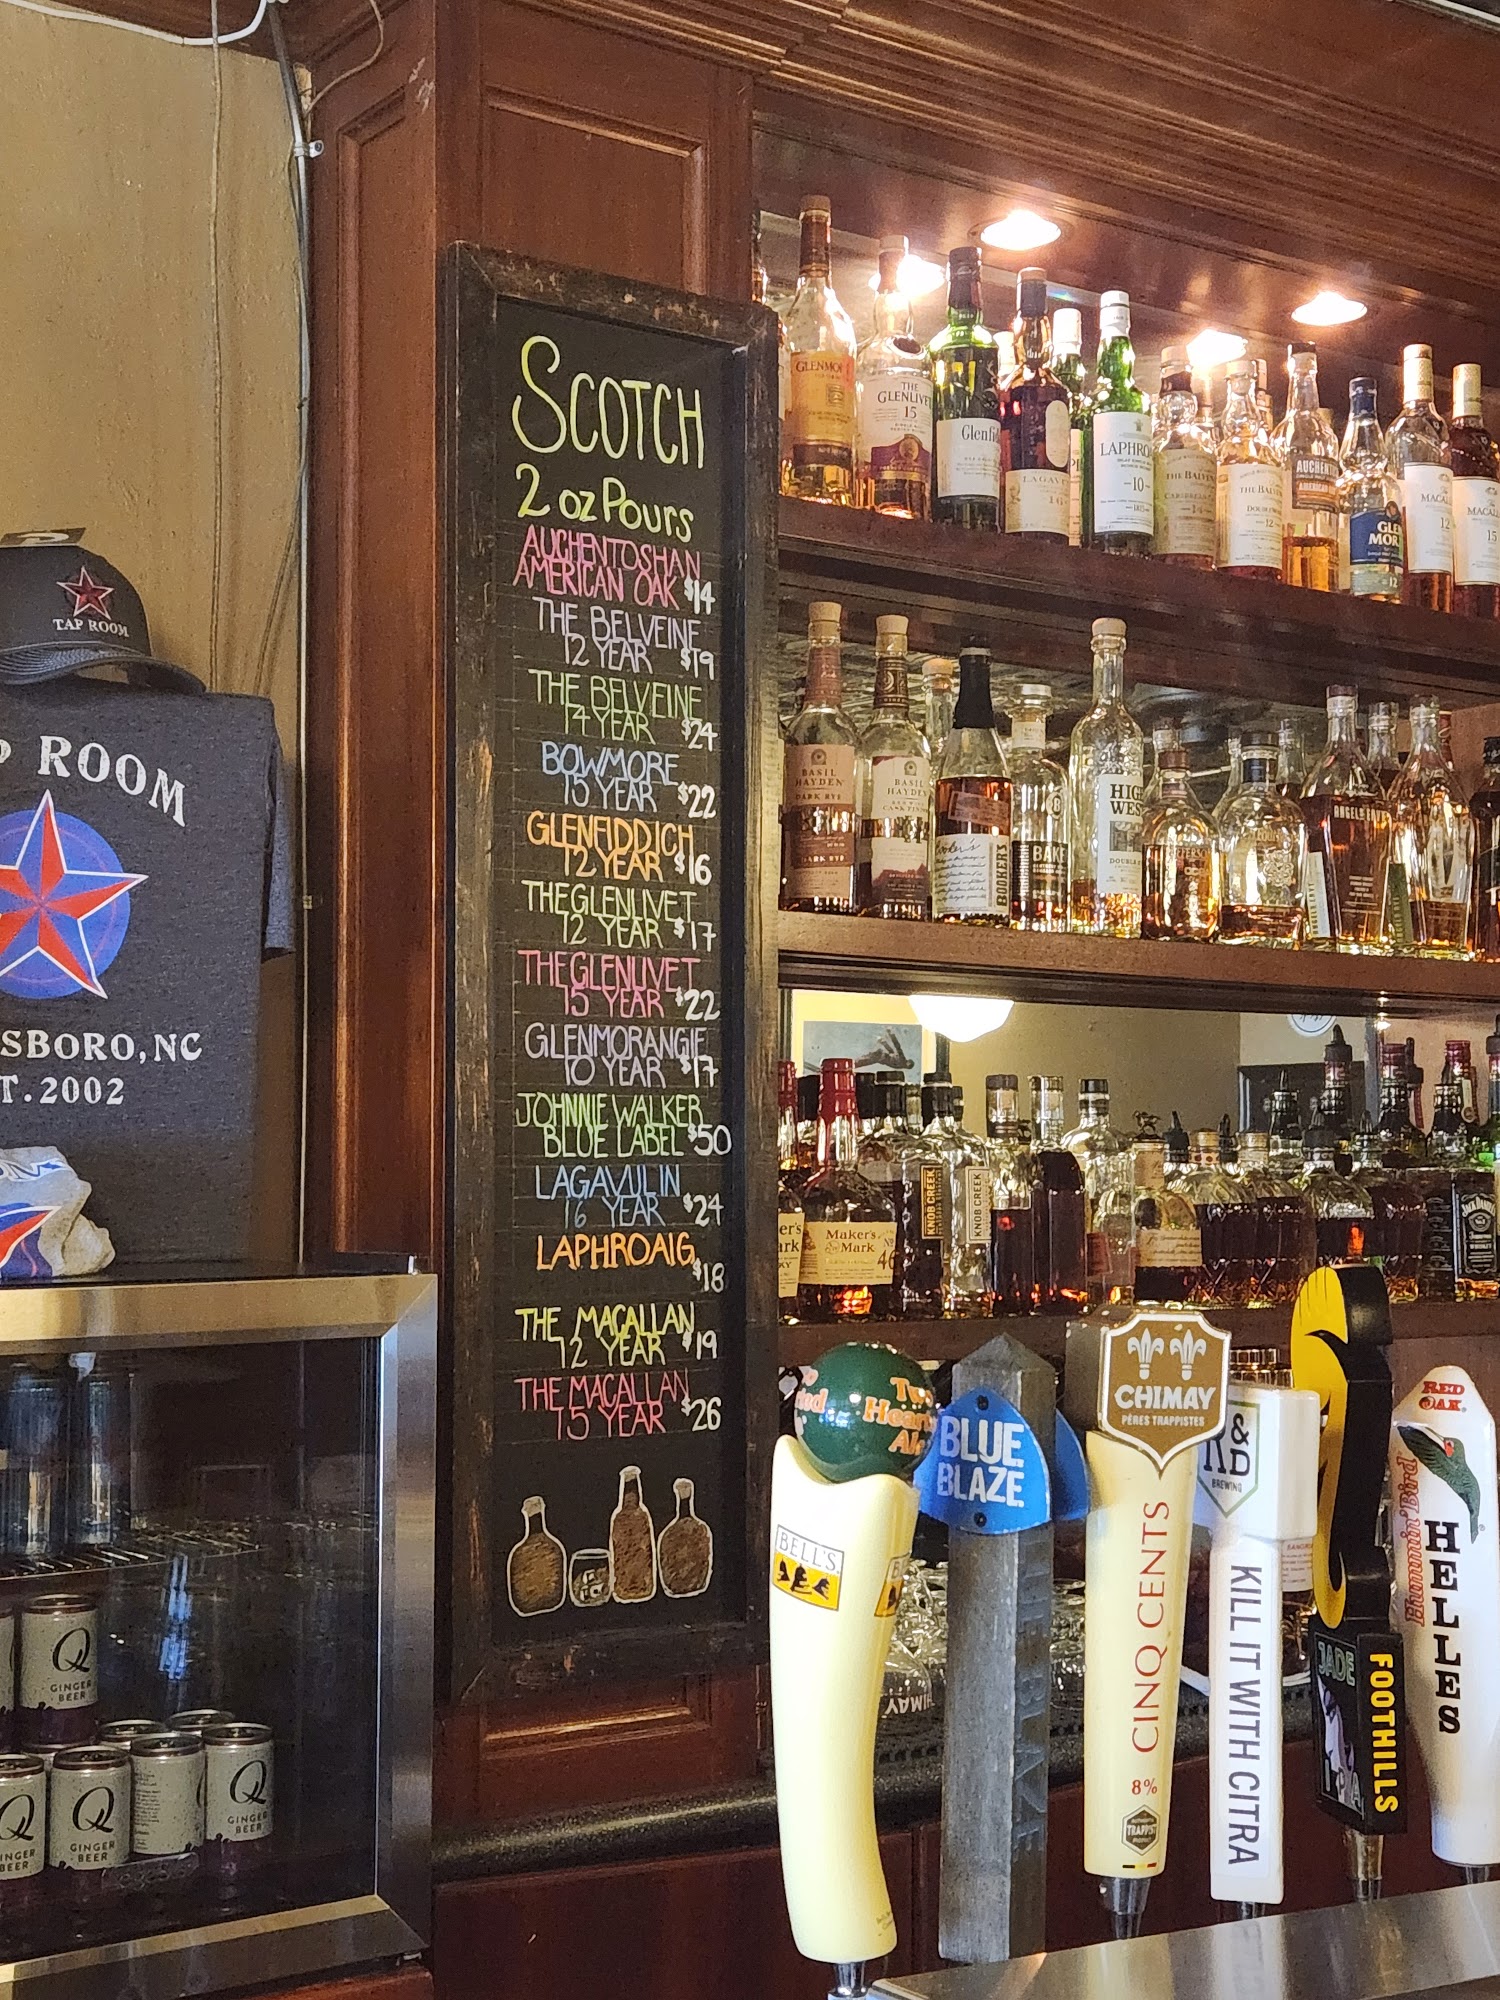 SCOTCH
2 oz POURS
AUCHENTOSHAN
AMERICAN OAK $14
THE BELVEINE
12 YEAR $19
THE BELVEINE
14 YEAR $24
BOWMORE
15 YEAR $22
GLENFIDDICH
12 YEAR $16
THE GLENLIVET
12 YEAR $17
THE GLENLIVET
15 YEAR $22
GLENMORANGIE
10 YEAR $17
JOHNNIE WALKER
BLUE LABEL $50
LAGAVULIN
16 YEAR $24
LAPHROAIG
$18
THE MACALLAN
12 YEAR $19
THE MACALLAN
15 YEAR $26
TAP ROOM
P ROOM
SBORO, NC
T. 2002
Q
GINGER
BEER
Q
GINGER
BEER
Q
GINGER
BEER
Q
GINGER
BEER
GLENMO
THE
GLENLIVET
15
Glenfi
LAGAV
16
LAPHRO
10
THE BALVEN
CARIBBEAN
14
THE BALVEN
DOUBLEWOOD
12
AUCHENT
AMERICAN
GLE
MOR
12
MACAL
12
MACAL
15
BASIL
HAYDEN
DARK RYE
BASIL
HAYDEN
Booker's
BOOKER'S
BAKE
HIG
WES
DOUBLE
ANGEL'S ENVY
er's
ark
Maker's
Mark
46
KNOB CREEK
KNOB CREEK
JACK DANIEL'S
Two
Hearted
Ale
BELL'S
BLUE
BLAZE
CHIMAY
PÈRES TRAPPISTES
CINQ CENTS
8%
TRAPPIST
R&D
BREWING
KILL IT WITH CITRA
JADE
IPA
FOOTHILLS
RED
OAK
Hummin' Bird
HELLES
CHIMAY